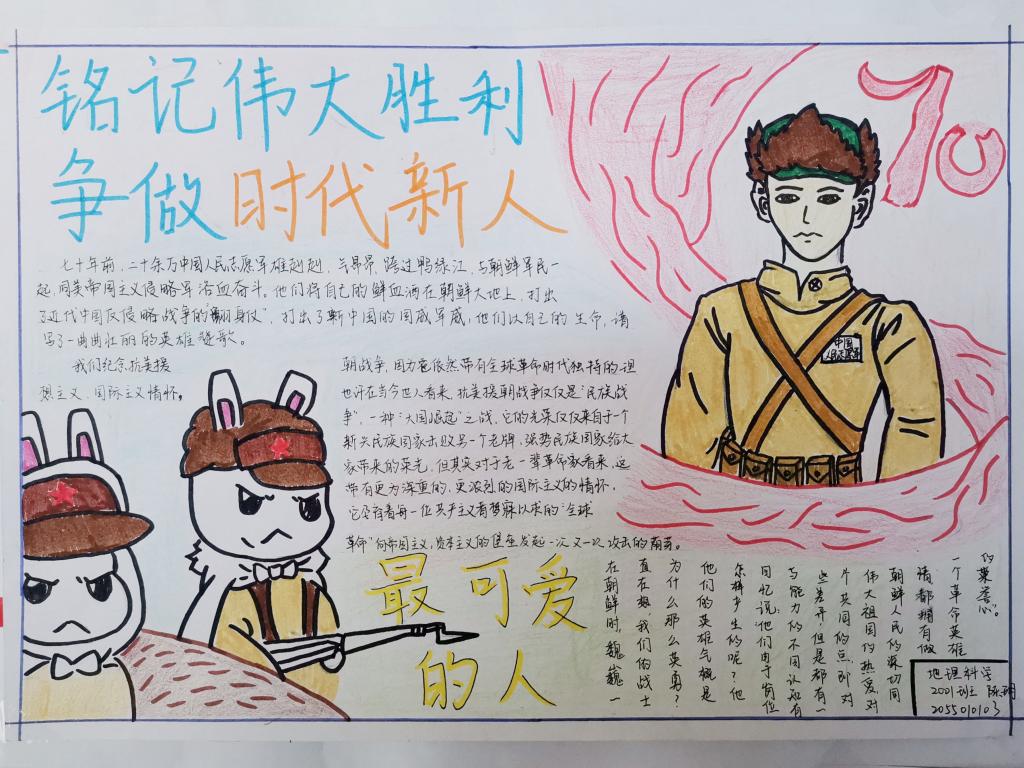 铭记伟大胜利
争做时代新人
70
七十年前,二十余万中国人民志愿军雄赳赳,气昂昂,跨过鸭绿江,与朝鲜军民一
起,同美帝国主义侵略军浴血奋斗。他们将自己的鲜血洒在朝鲜大地上,打出
了近代中国反侵略战争的翻身仗",打出了新中国的国威军威,他们以自己的生命,谱
写了一曲曲壮丽的的英雄赞歌。
我们纪念抗美援
想主义、国际主义情怀。
朝战争,因为它依然带有全球革命时代独特的理
也许在当今世人看来,抗美援朝战争仅仅是"民族战
争",一种"大国崛起"之战,它的光荣仅仅来自于一个
新兴民族国家击败另一个老牌,强势民族国家给大
家带来的荣光,但其实对于老一辈革命家看来,这
带有更为深重的,更浓烈的国际主义的情怀,
它存着每一位共产主义者梦寐以求的"全球
革命"向帝国主义,资本主义的堡垒发起一次又一次攻击的
中国
人民志愿军
最可爱
的人
在朝鲜时,魏巍一
直在想,我们的战士
为什么那么英勇?
他们的英雄气概是
怎样产生的呢?他
回忆说:他们由于岗位
与能力的不同认知有
些差异,但是都有一
片共同的点,即对
伟大祖国的热爱,对
朝鲜人民的深切同
情,都拥有做
一个革命英雄
的荣誉心"。
地理科学
2001班
2055010103